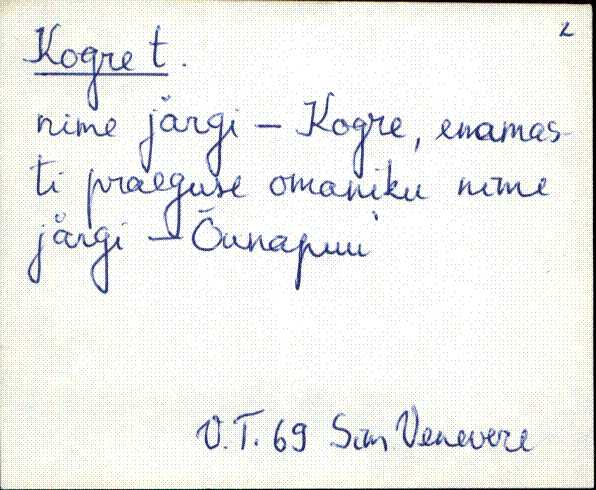 2
Kogre t.
nime järgi – Kogre, enamas-
ti praeguse omaniku nime
järgi – Õunapuu
V.T. 69 Sim Venevere